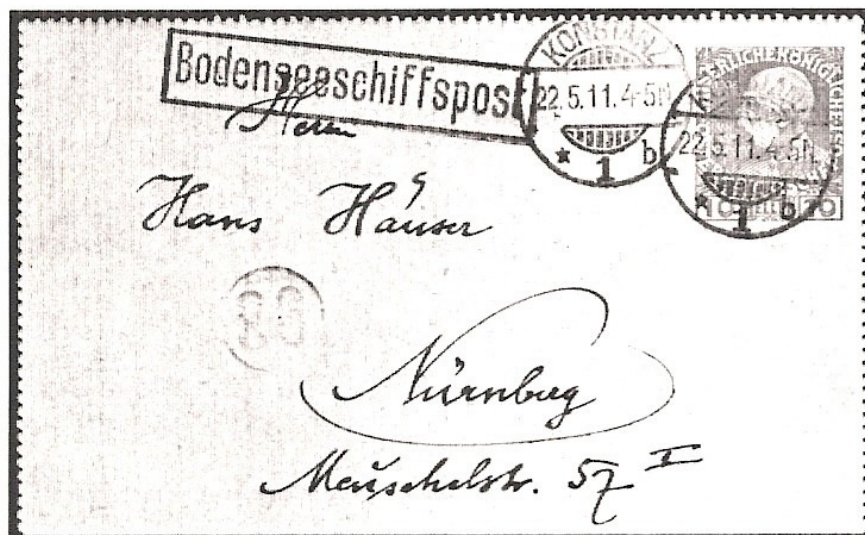 Bodenseeschiffspost
KONSTANZ
22.5.11.4-5N.
* 1 b
22.5.11.4-5N.
* 1 b
10 HELLER 10
Herrn
Hans Häuser
Nürnberg
Meuschelstr. 57 I